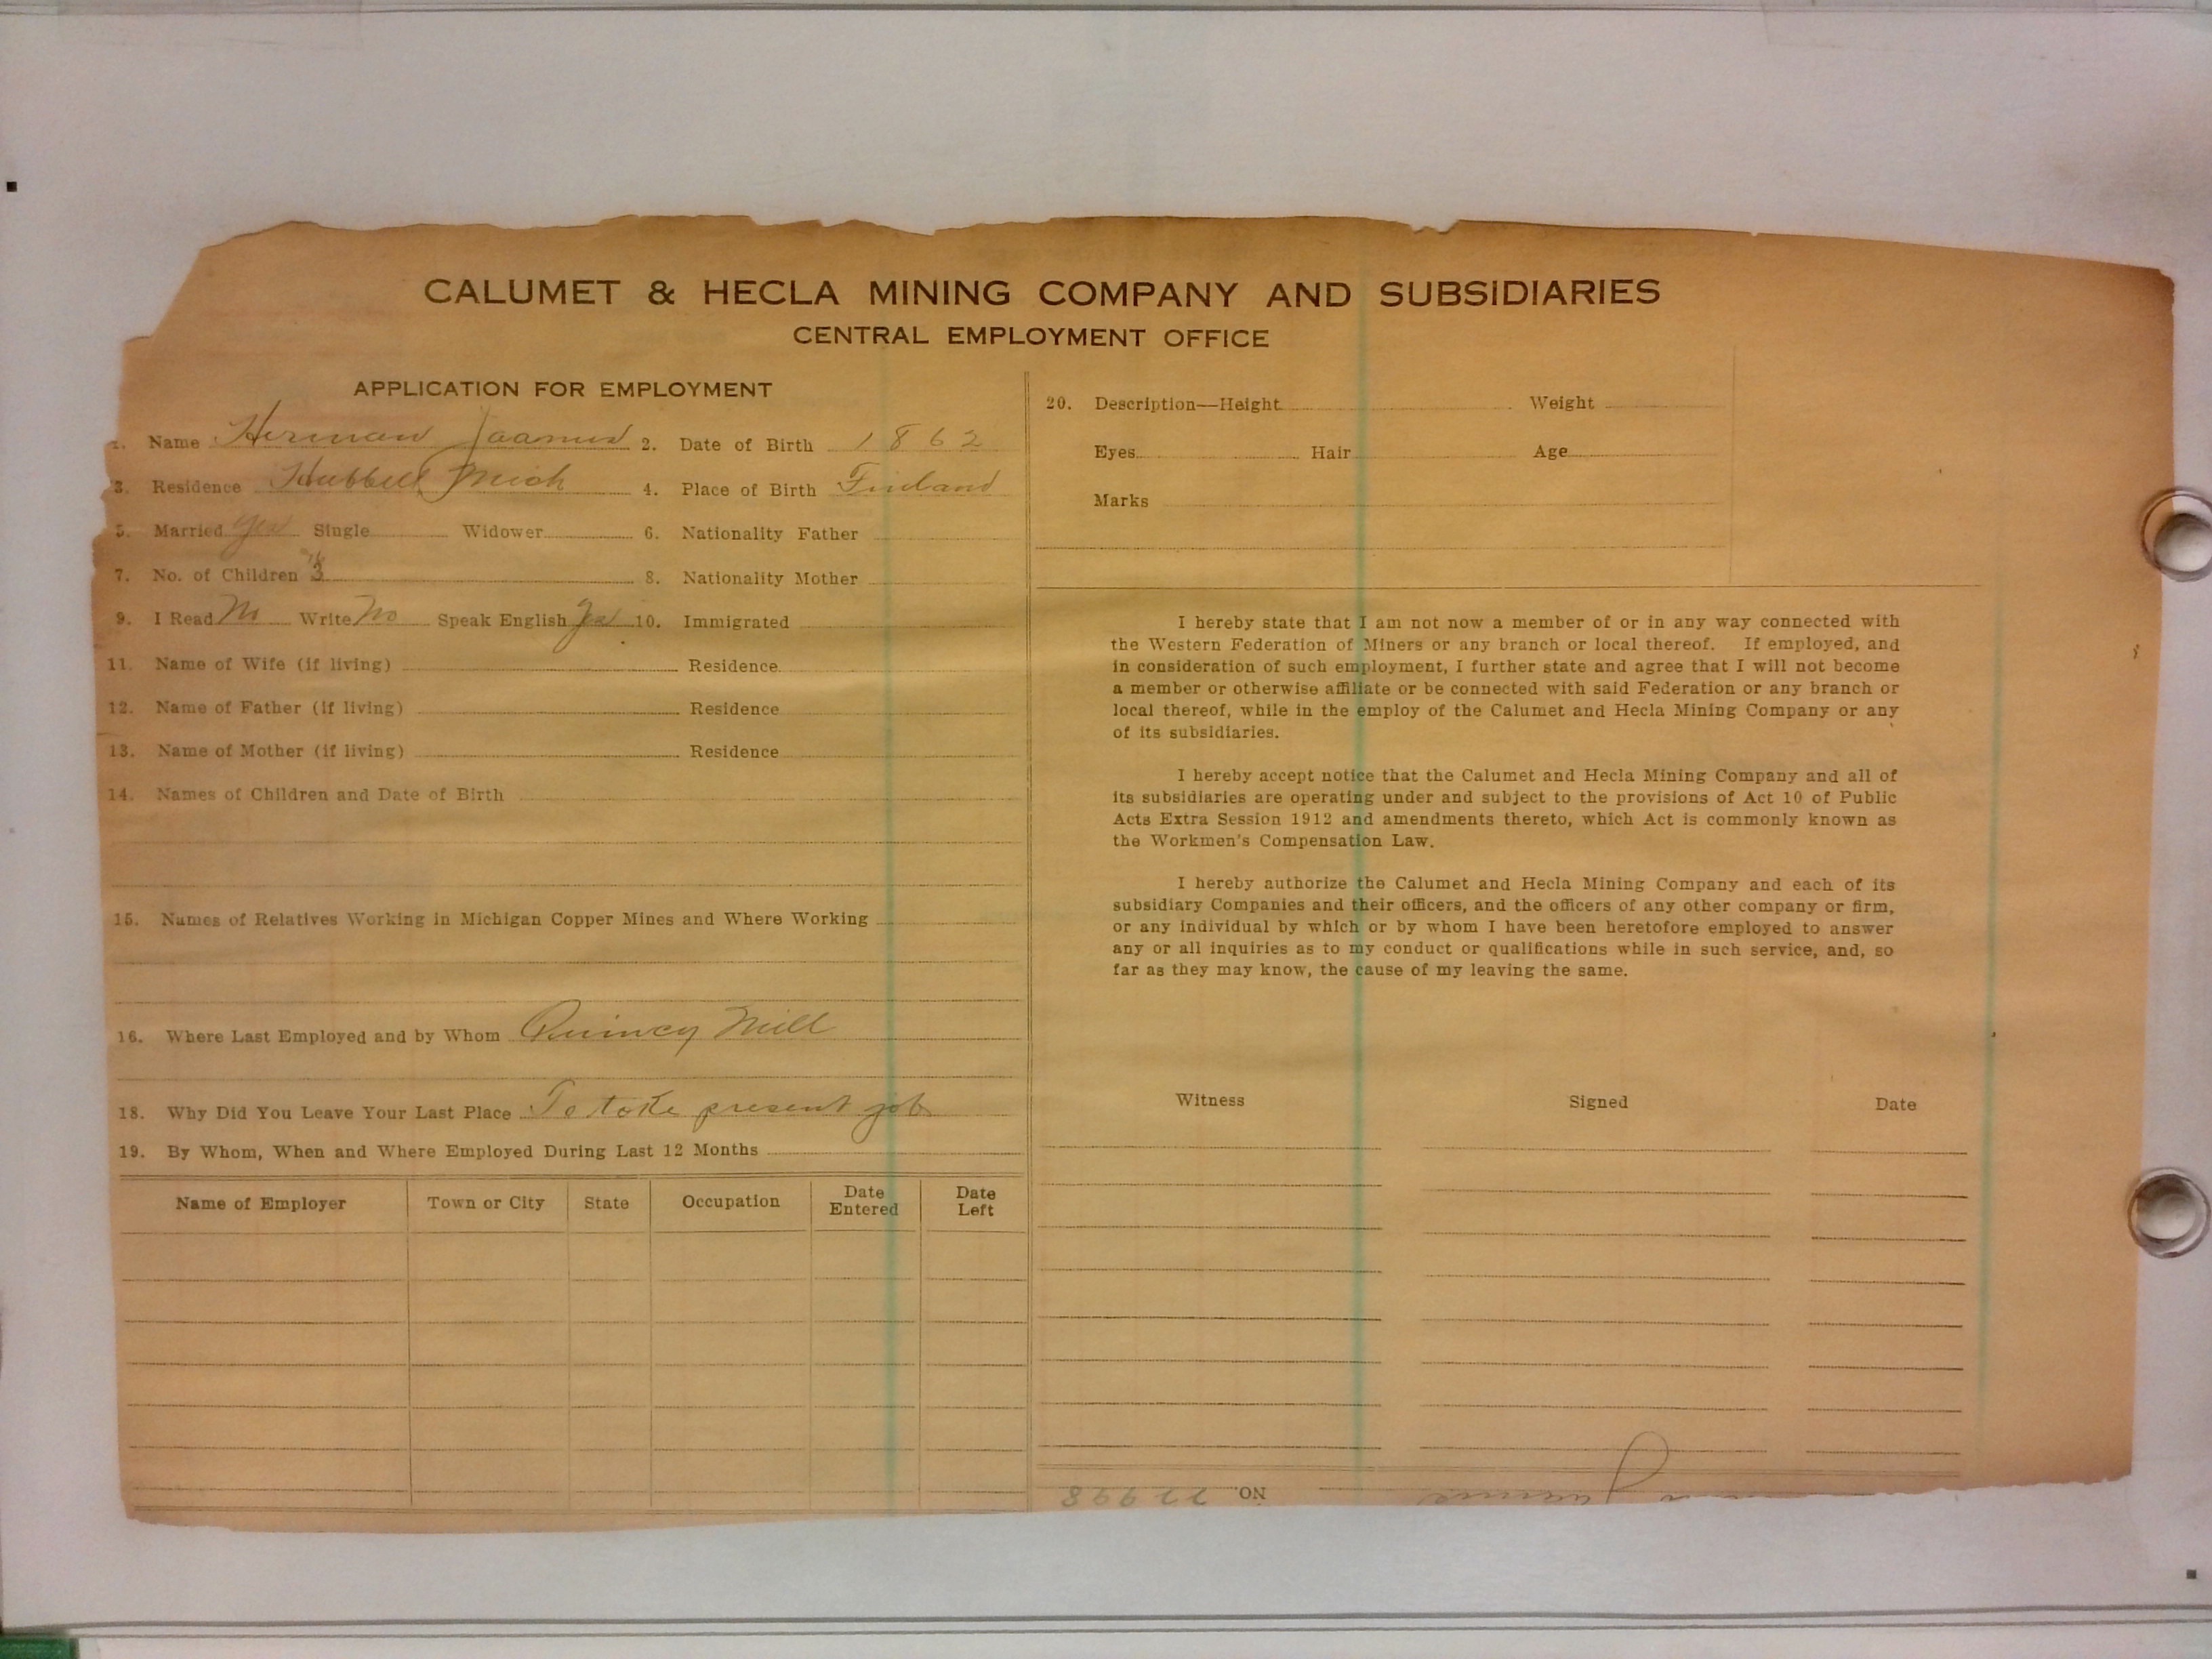 CALUMET & HECLA MINING COMPANY AND SUBSIDIARIES
CENTRAL EMPLOYMENT OFFICE
APPLICATION FOR EMPLOYMENT
1. Name Herman Jaanus 2. Date of Birth 1862
3. Residence Hubbell Mich 4. Place of Birth Finland
5. Married Yes Single Widower 6. Nationality Father
7. No. of Children 3 8. Nationality Mother
9. I Read No Write No Speak English Yes 10. Immigrated
11. Name of Wife (if living) Residence
12. Name of Father (if living) Residence
13. Name of Mother (if living) Residence
14. Names of Children and Date of Birth
15. Names of Relatives Working in Michigan Copper Mines and Where Working
16. Where Last Employed and by Whom Quincy Mill
18. Why Did You Leave Your Last Place To take present job
19. By Whom, When and Where Employed During Last 12 Months
Name of Employer Town or City State Occupation Date Entered Date Left
20. Description—Height Weight
Eyes Hair Age
Marks
I hereby state that I am not now a member of or in any way connected with
the Western Federation of Miners or any branch or local thereof. If employed, and
in consideration of such employment, I further state and agree that I will not become
a member or otherwise affiliate or be connected with said Federation or any branch or
local thereof, while in the employ of the Calumet and Hecla Mining Company or any
of its subsidiaries.
I hereby accept notice that the Calumet and Hecla Mining Company and all of
its subsidiaries are operating under and subject to the provisions of Act 10 of Public
Acts Extra Session 1912 and amendments thereto, which Act is commonly known as
the Workmen's Compensation Law.
I hereby authorize the Calumet and Hecla Mining Company and each of its
subsidiary Companies and their officers, and the officers of any other company or firm,
or any individual by which or by whom I have been heretofore employed to answer
any or all inquiries as to my conduct or qualifications while in such service, and, so
far as they may know, the cause of my leaving the same.
Witness Signed Date
NO.